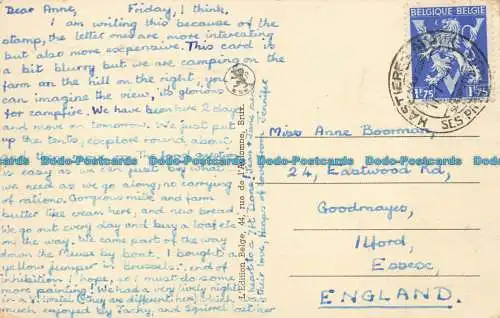 Dear Anne, Friday, I think.
I am writing this because of the
stamp, the letter ones are more interesting
but also more expensive. This card is
a bit blurry but we are camping on the
farm on the hill on the right, you
can imagine the view, its glorious
for campfire. We have been here 2 days
and move on tomorrow. We just put
up the tents, explore round about
is easy as we can just buy what
we need as we go along, no carrying
of rations. Gorgeous milk and farm
butter like cream here, and new bread.
We go out every day and buy a loaf etc
on the way. We came part of the way
down the Meuse by boat. I bought a
yellow jumper in Brussels, end of
inhibition! I hope, as I must do some
more painting! We had a very lively night
in a hostel (they are different here) which is
much enjoyed by Jacky, and Squirrel
their love, Heaps of love from Jennifer
L'Edition Belge, 44, rue de l'Automne, Brux.
BELGIQUE BELGIE
1F75 1F75
HASTIERE
Miss Anne Boorman,
24, Eastwood Rd,
Goodmayes,
Ilford,
Essex,
ENGLAND.